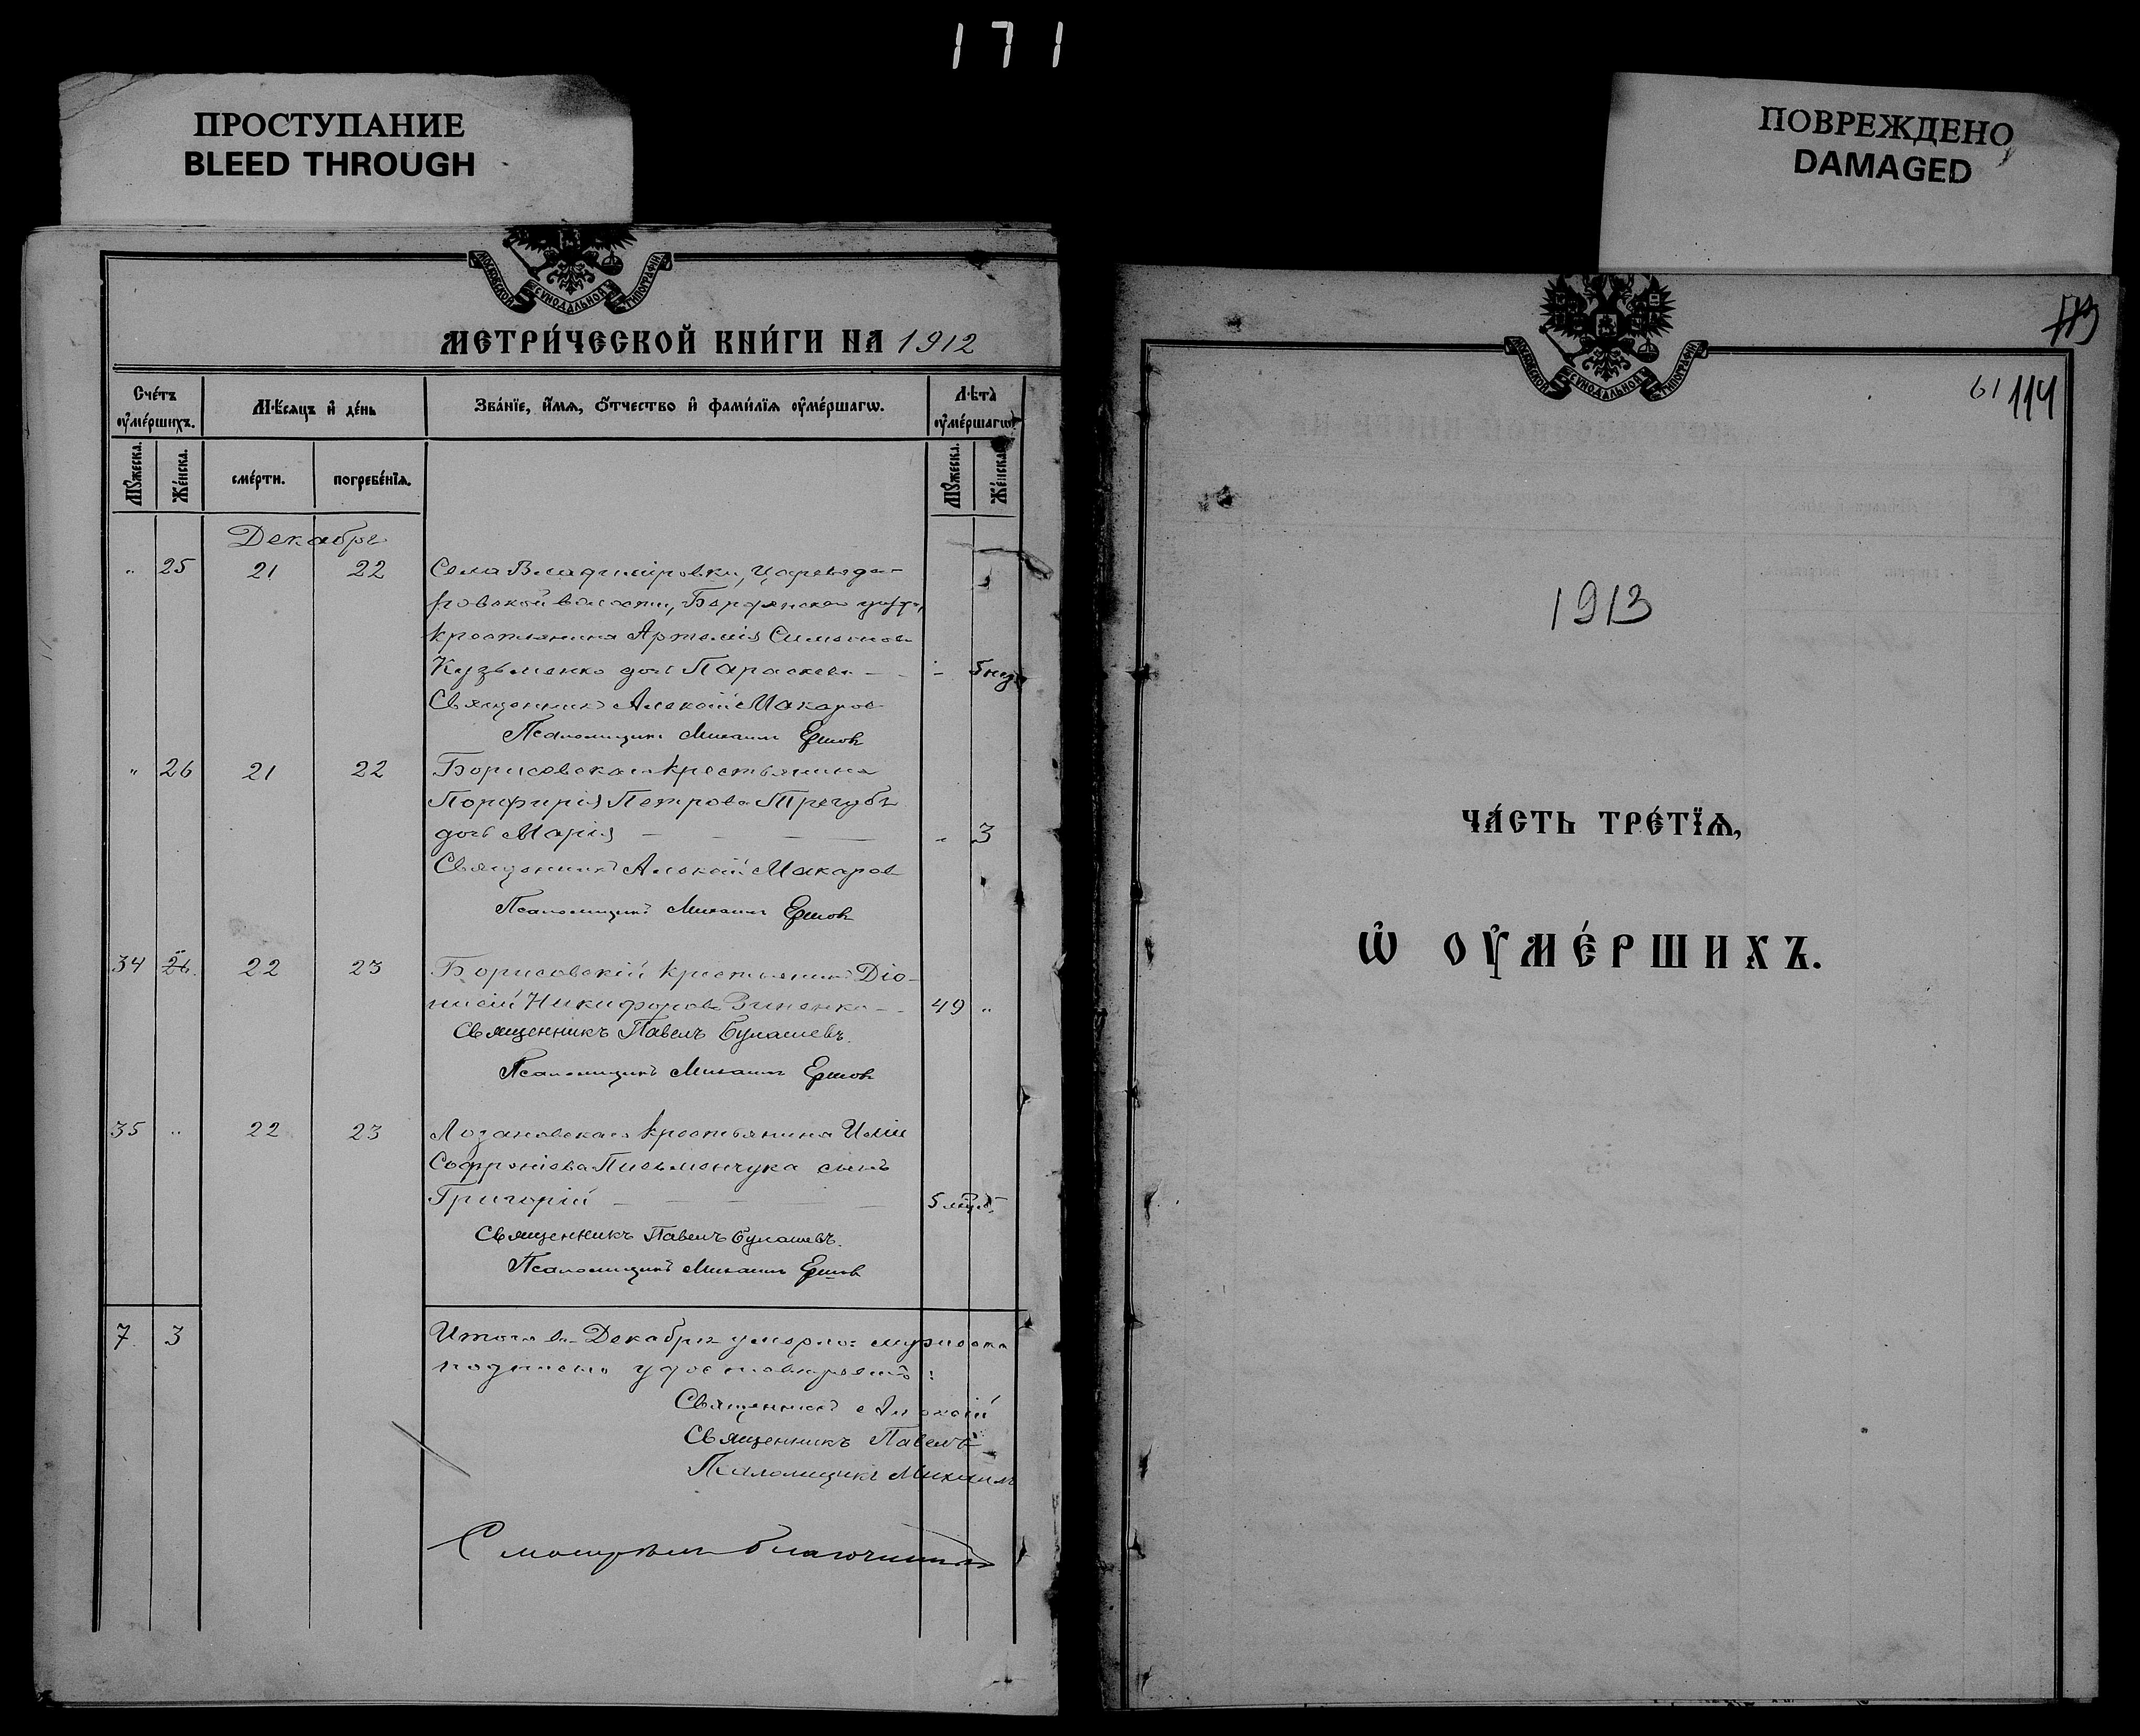 171
ПРОСТУПАНИЕ
BLEED THROUGH
ПОВРЕЖДЕНО
DAMAGED
МОСКОВСКОЙ СУНОДАЛЬНОЙ ТИПОГРАФІИ
МЕТРИ́ЧЕСКОЙ КНИ́ГИ НА 1912
Сче́тъ ᲂу҆ме́ршихъ.
Мѣ́сяцъ и҆ де́нь
Зва́нїе, и҆́мѧ, ѻ҆́тчество и҆ фами́лїѧ ᲂу҆ме́ршагѡ.
Лѣ́та ᲂу҆ме́ршагѡ.
Мꙋ́жеска.
Же́нска.
сме́рти.
погребе́нїѧ.
Мꙋ́жеска.
Же́нска.
Декабрь
" 25 21 22 Села Владиміровки, Царевода-
ровской волости, Бердянскаго уѣзда,
крестьянина Артемія Симонова
Кузьменко дочь Параскева - - 5 мѣс.
Священникъ Алексій Макаровъ
Псаломщикъ Михаилъ Ершовъ
" 26 21 22 Борисовскаго крестьянина
Порфирія Петрова Трегубъ
дочь Марія — — — " 3
Священникъ Алексій Макаровъ
Псаломщикъ Михаилъ Ершовъ
34 26. 22 23 Борисовскій крестьянинъ Діо-
нисій Никифоровъ Зиненко - - 49 "
Священникъ Павелъ Булашевъ.
Псаломщикъ Михаилъ Ершовъ
35 " 22 23 Лозановскаго крестьянина Иліи
Софроніева Письменчука сынъ
Григорій — — — 5 мѣс.
Священникъ Павелъ Булашевъ.
Псаломщикъ Михаилъ Ершовъ
7 3 Итого въ Декабрѣ умерло: мужеска
подписью удостовѣряемъ:
Священникъ Алексій
Священникъ Павелъ
Псаломщикъ Михаилъ
Смотрѣлъ благочинный
МОСКОВСКОЙ СУНОДАЛЬНОЙ ТИПОГРАФІИ
113
61 114
1913
ЧА́СТЬ ТРЕ́ТЇѦ,
Ѡ҆ ОУ҆МЕ́РШИХЪ.